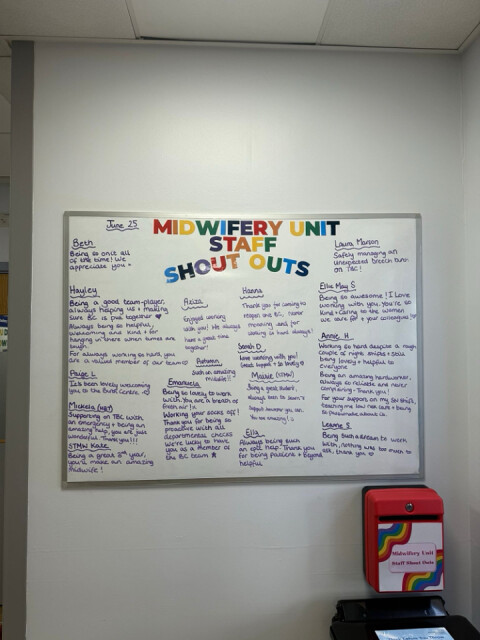 June 25
MIDWIFERY UNIT
STAFF
SHOUT OUTS
Beth
Being so on it all
of the time! We
appreciate you
Hayley
Being a good team-player,
always helping us + making
sure BC is put together
Always being so helpful,
welcoming and kind + for
hanging in there when times are
tough.
For always working so hard, you
are a valued member of our team
Paige L
It's been lovely welcoming
you to the Birth Centre
Michela
Supporting on TBC with
an emergency + being an
amazing help, you are just
wonderful. Thank you!!!
STMW Kate
Being a great 3rd year,
you'll make an amazing
midwife!
Aziza
Enjoyed working
with you! We always
have a great time
together!
Autumn
Such an amazing
midwife!!
Emanuela
Being so lovely to work
with. You are a breath of
fresh air!
Working your socks off!
Thank you for being so
proactive with all the
departments checks
We're lucky to have
you as a member of
the BC team
Hanna
Thank you for coming to
Sarah D
Love working with you!
Great support + so lovely
Maisie
Being a great student,
always keen to learn
Ella
Always being such
an epic help. Thank you
for being patient + beyond
helpful
Laura Marson
Safely managing an
unexpected breech
on TBC!
Ella May S
Being so awesome! I Love
working with you. You're so
kind + caring to the women
we care for + your colleagues!
Annie. H
Working so hard despite a rough
couple of night shifts + still
being lovely + helpful to
everyone
Being an amazing hardworker,
always so reliable and never
complaining - Thank you!
For your support on my 1st shift,
teaching me low risk care + being
so passionate about it.
Leanne S
Being such a dream to work
with, nothing was too much to
ask, thank you
Midwifery Unit
Staff Shout Outs